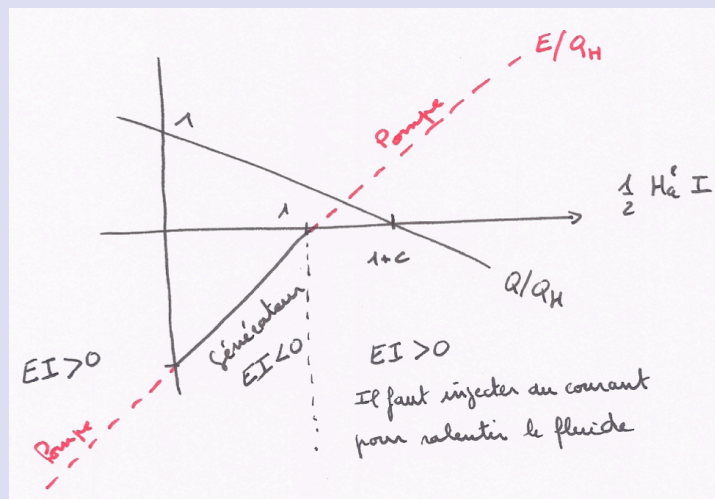 E/Q_H
Pompe
1
½ Ha² I
1
1+c
Q/Q_H
Générateur
EI<0
EI>0
EI>0
Il faut injecter du courant
pour ralentir le fluide
Pompe